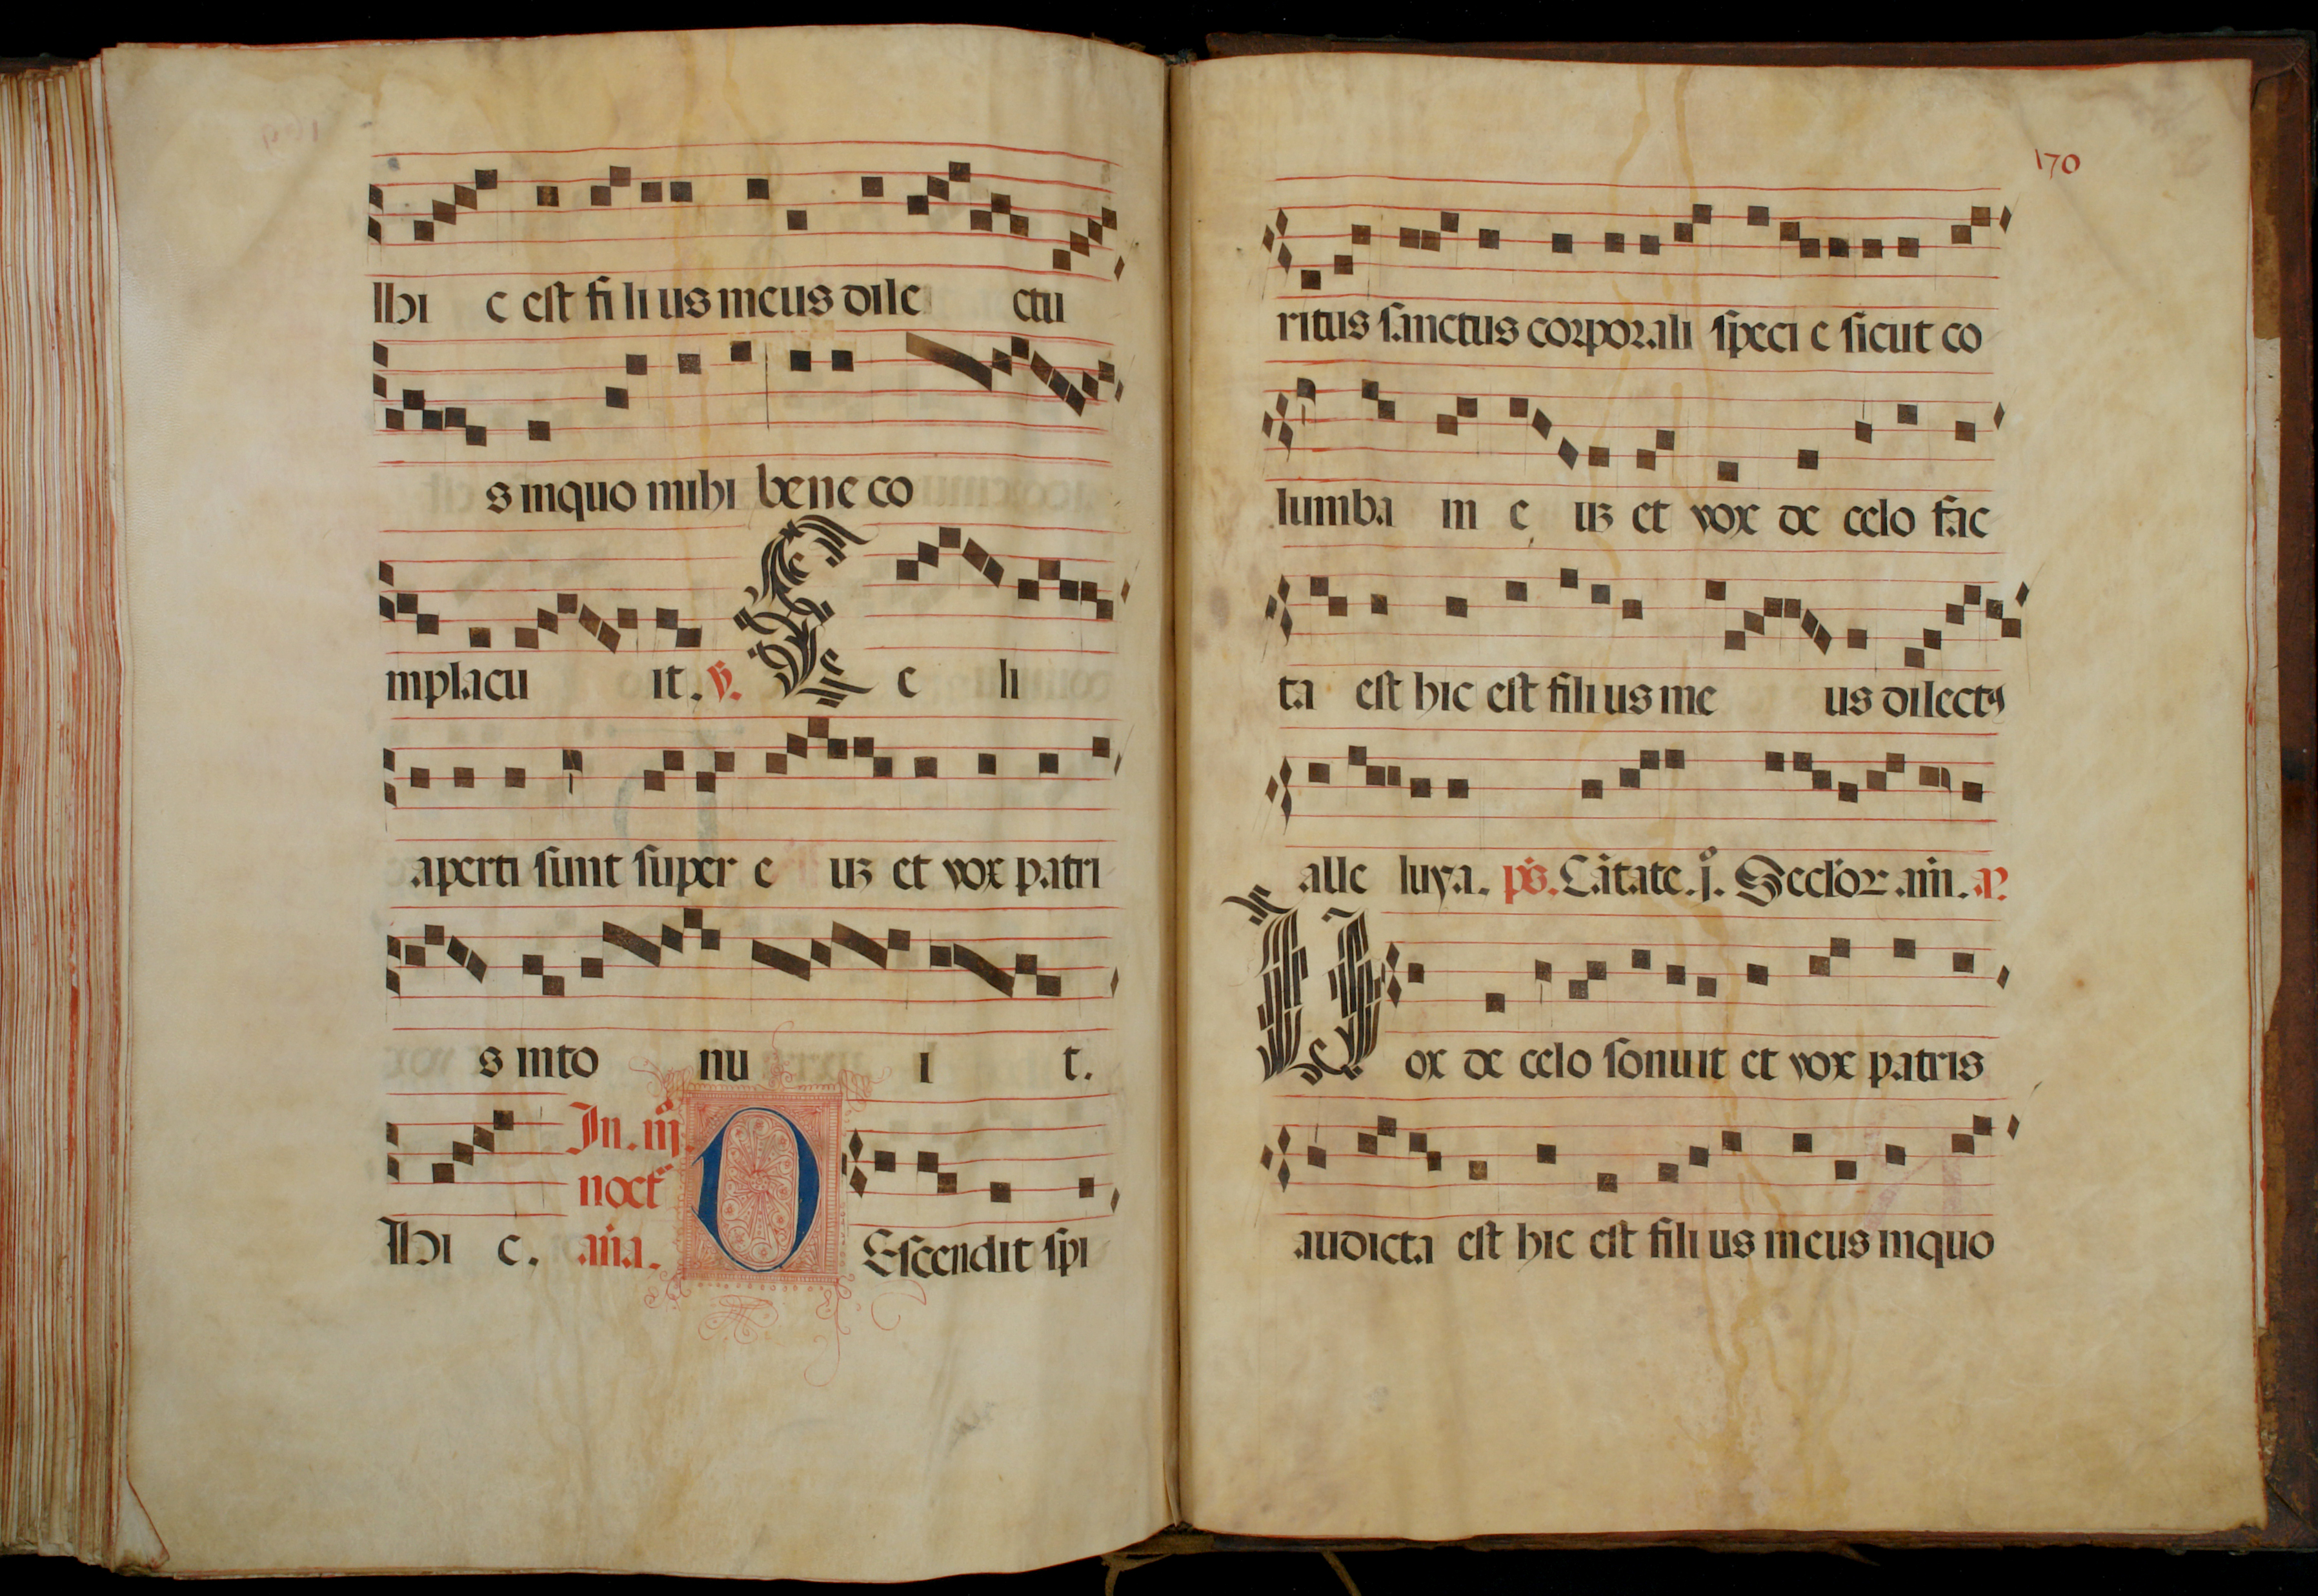 Hi c est fi li us meus dile ctu
s inquo mihi bene co
mplacu it. v. C e li
aperti sunt super e uz et vox patri
s into nu i t.
In. iij.
noct
Hi c. an̄a. D Escendit spi
170
ritus sanctus corporali speci e sicut co
lumba in e uz et vox de celo fac
ta est hic est fili us me us dilectꝰ
alle luya. ps. Cātate. j. Seclor am̄. a.
V ox de celo sonuit et vox patris
audicta est hic est fili us meus inquo